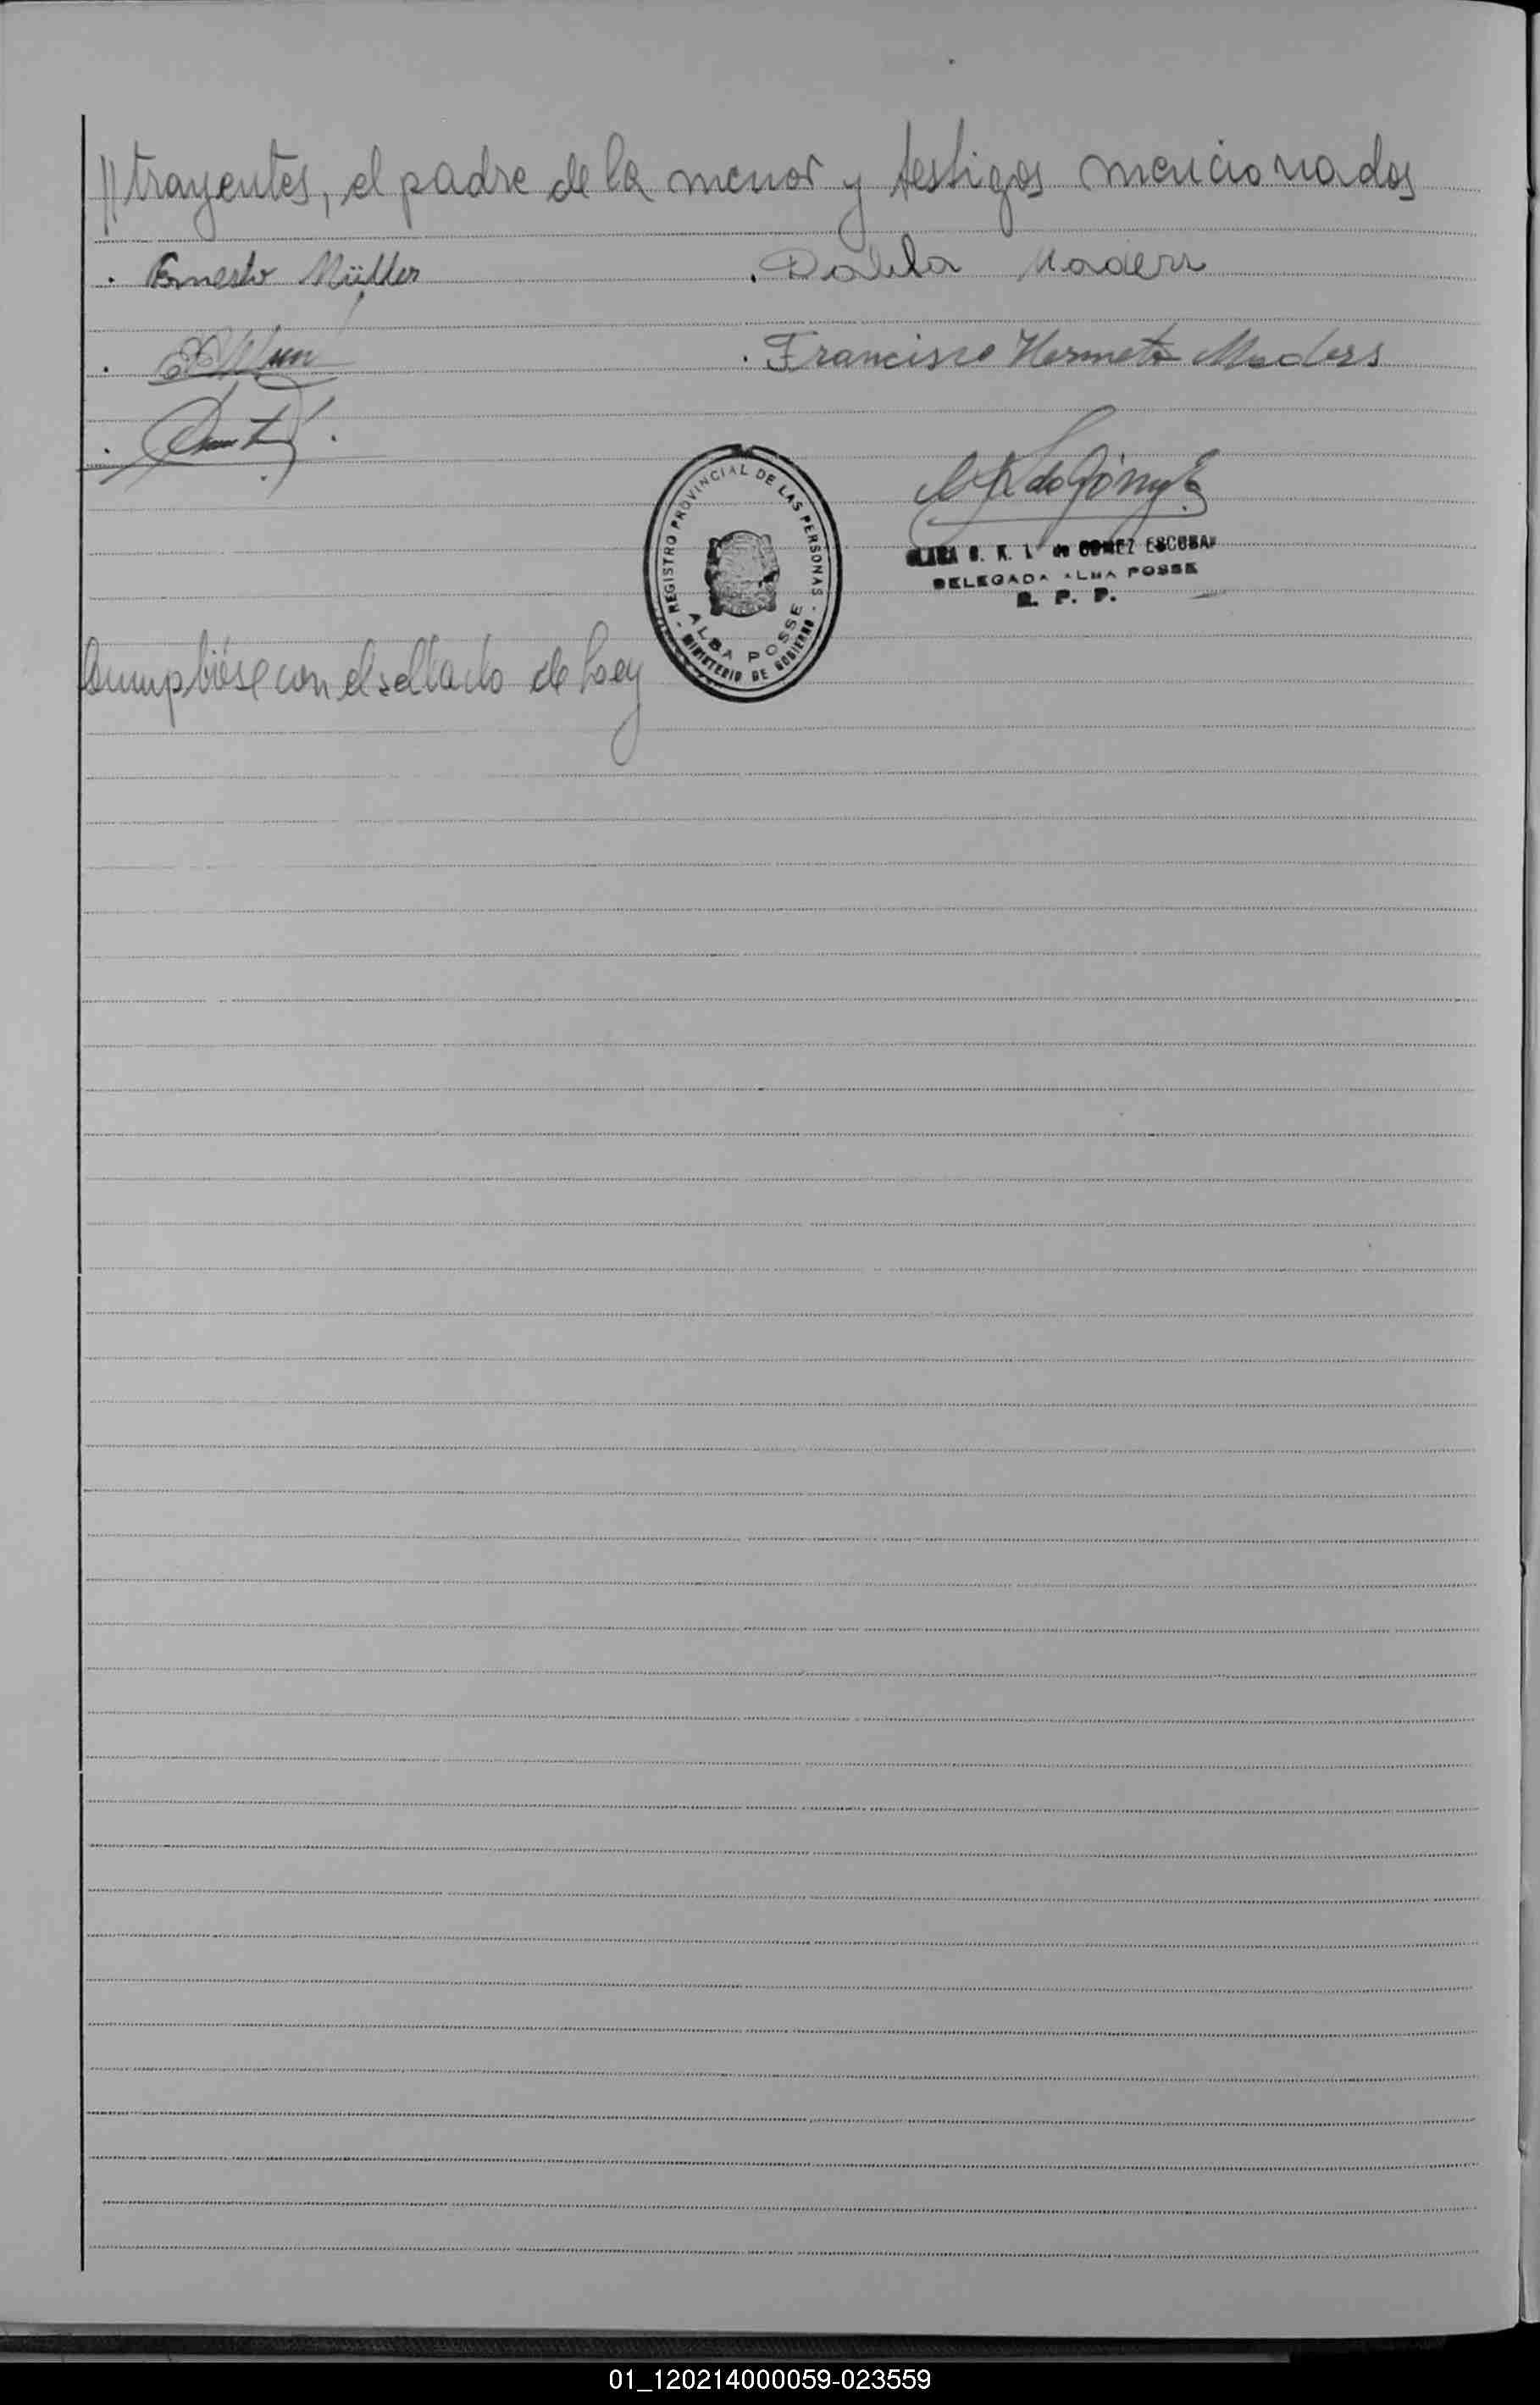 //trayentes, el padre de la menor y testigos mencionados
. Ernesto Müller
. Dalila Maders
. Francisco Hermeto Maders
REGISTRO PROVINCIAL DE LAS PERSONAS - MINISTERIO DE GOBIERNO -
ALBA POSSE
de GOMEZ ESCOBAR
DELEGADA ALBA POSSE
R. P. P.
Cumplióse con el sellado de Ley
01_120214000059-023559